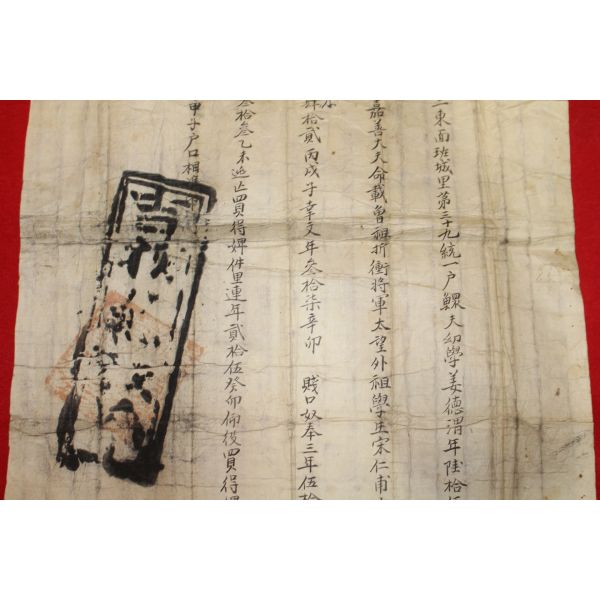 東面班城里第三十九統一户鰥夫幼學姜德渭年陸拾
嘉善大夫命載曾祖折衝將軍太望外祖學生宋仁甫
拾貳丙戌子幸文年叁拾柒辛卯 賤口奴奉三年伍拾
拾叁乙未逃亡買得婢件里連年貳拾伍癸卯仰役買得婢
甲子户口相